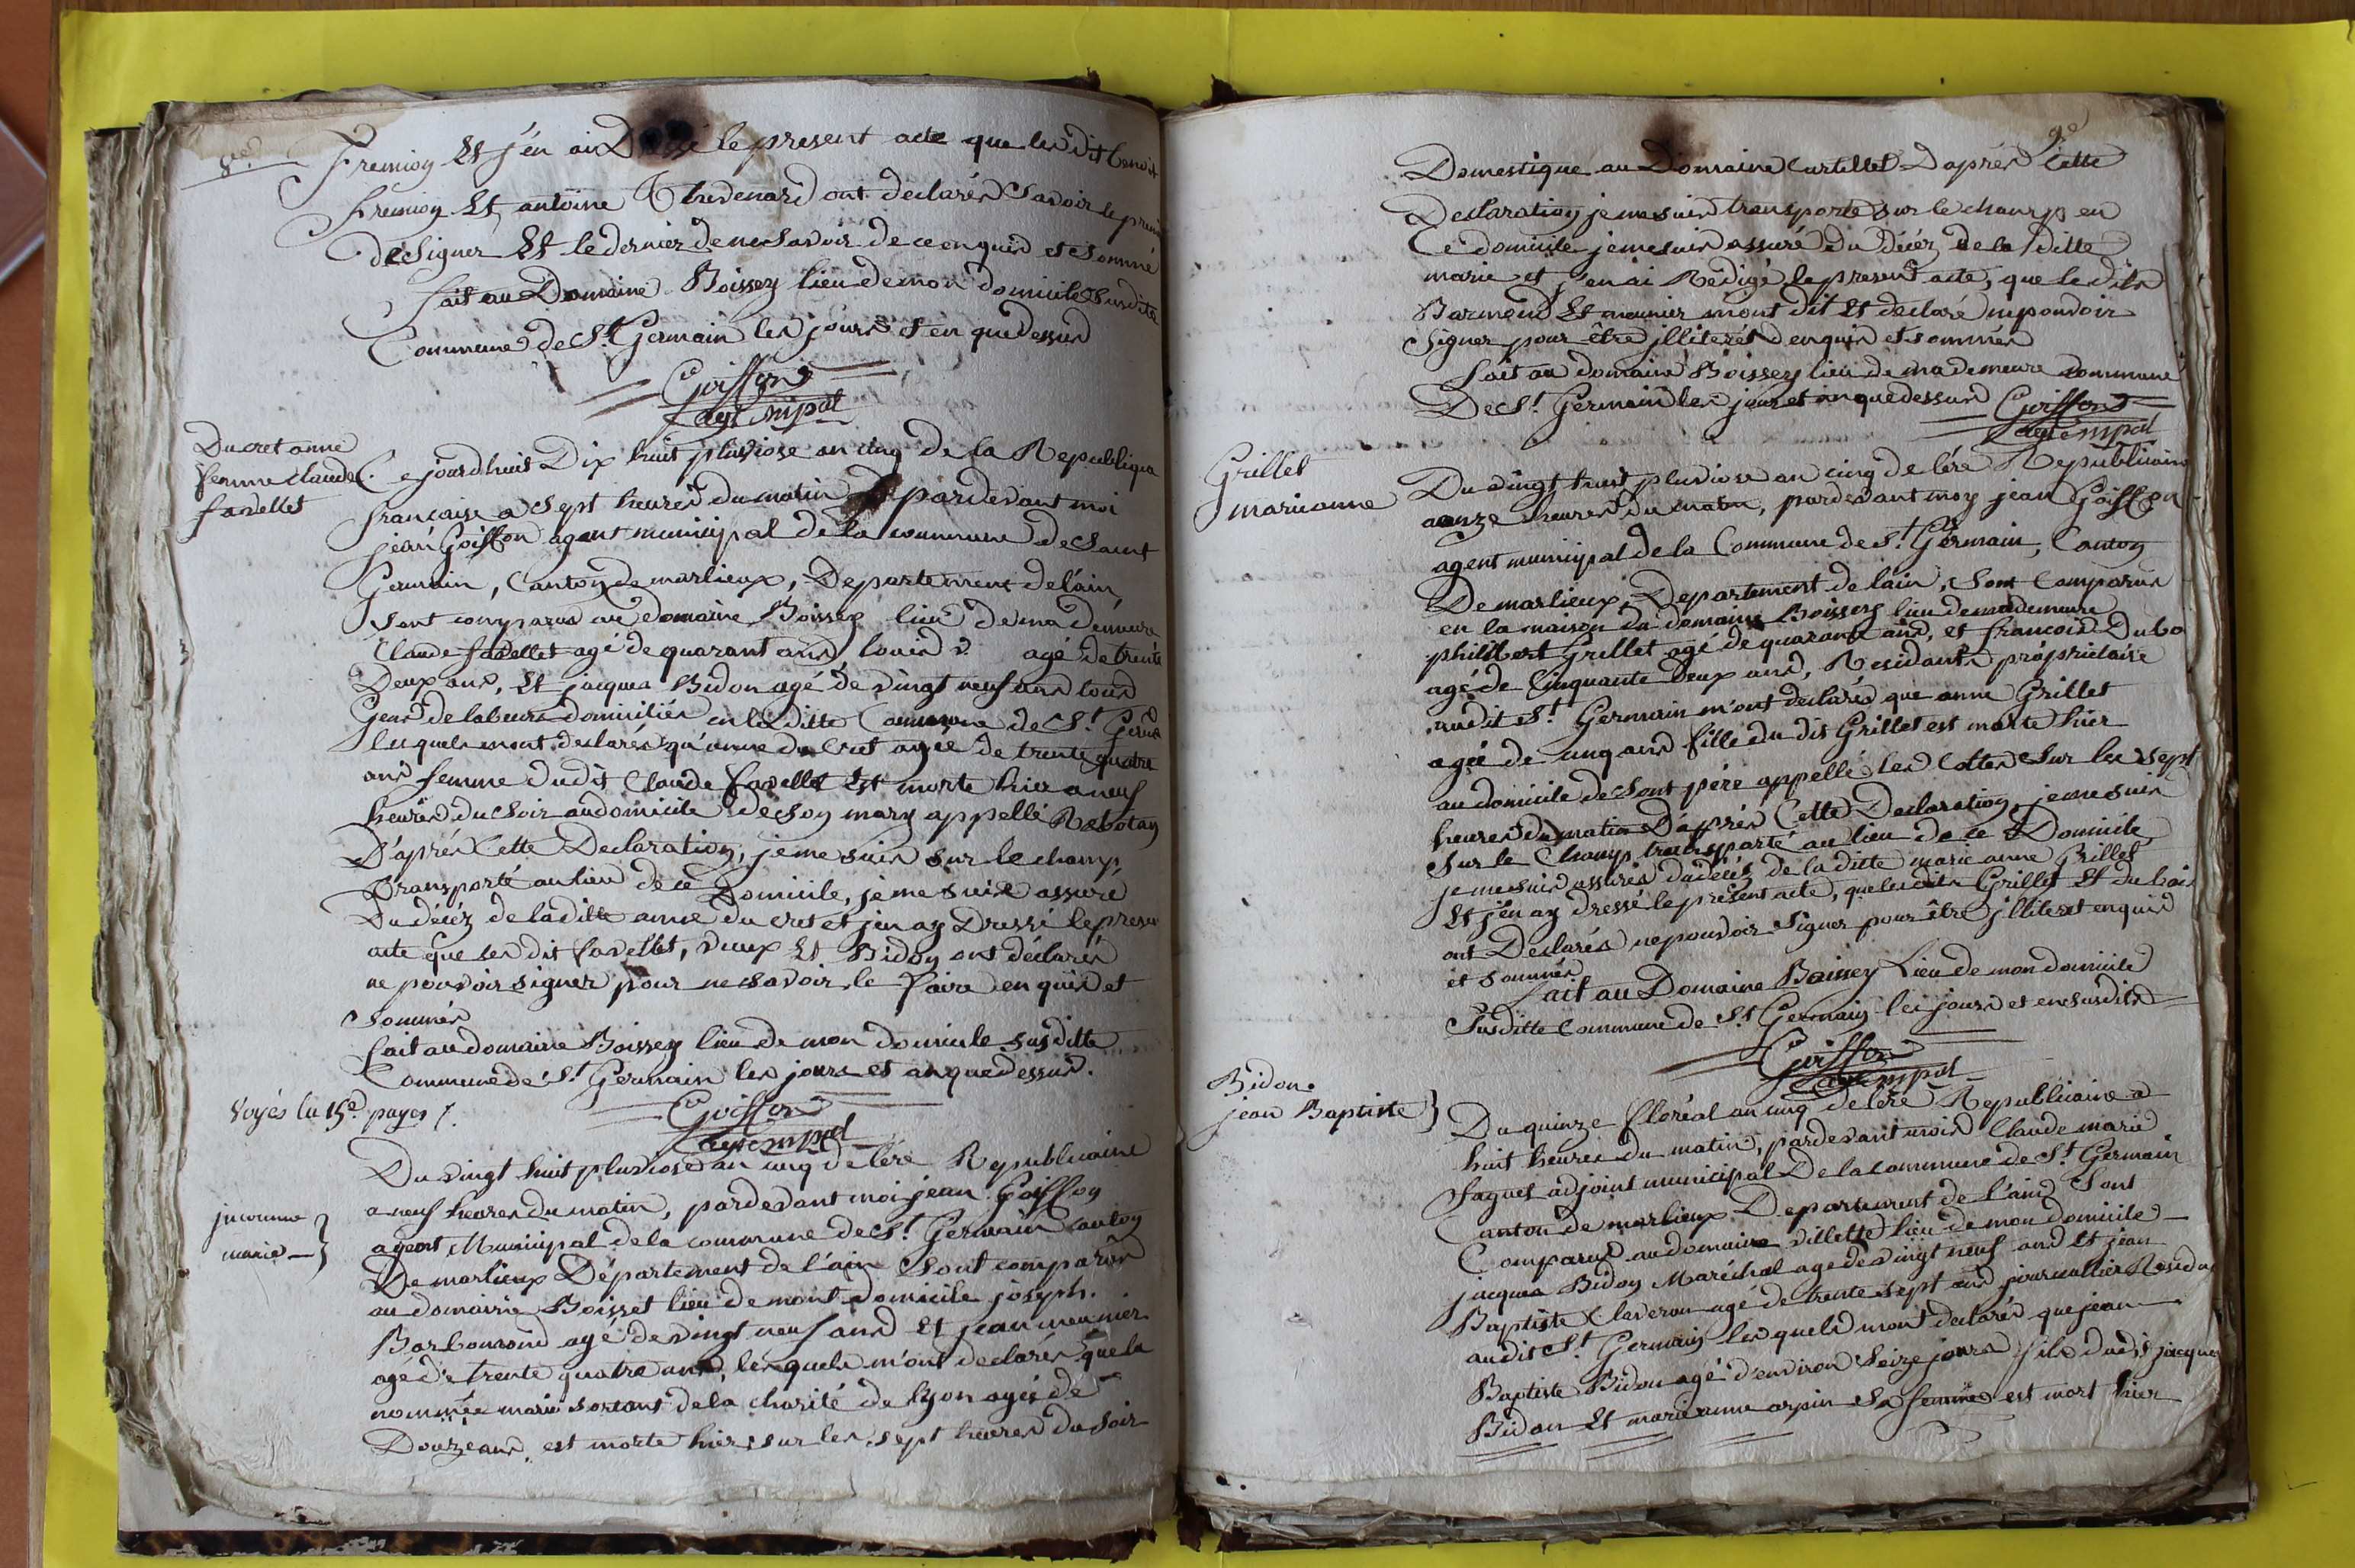 8e.
fremion Et j'en ai Dressé le present acte que les dit benoit
fremion Et antoine Thevenard ont declarés Savoir le premier
de Signer Et le dernier de ne Savoir de ce enquis et Sommé
fait au Domaine Boissey lieu de mon domicile Susdite
Commune de St. Germain les jours et en que dessus
Goiffon
agt. mpal
Ducret anne
femme claude
favellet
Ce jourdhuit Dix huit pluviose an cinq de la Republique
francaise a Sept heures du matin pardevant moi
jean Goiffon agent municipal de la commune de Saint
Germain, Canton de marlieux, Departement de l'ain,
Sont comparus au domaine Boissey lieu de ma demeure
Claude favellet agé de quarant ans, louis v. agé de trente
Deux ans, Et jacques Bidon agé de vingt neuf ans tous
Gens de labeurs domiciliés en la ditte Commune de St. Germ
lesquels mont declarés qu'anne du Cret agée de trente quatre
ans femme dudit Claude favellet Est morte hier a neuf
heures du Soir au domicile de son mary appellé Rebotay
D'aprés Cette Declaration, je me suis sur le champ
Transporté au lieu de ce Domicile, je me suis assuré
Du décéz de la ditte anne du cret et j'en ay Dressé le present
acte que les dit favellet, vieux Et Bidon ont déclarés
ne pouvoir signer pour ne savoir le faire enquis et
Sommés
fait au domaine Boissey lieu de mon domicile susditte
Commune de St. Germain les jours et an que dessus.
Goiffon
agt. mpal
Voyés la 15e. pages /.
jnconnue
marie
Du vingt huit pluviose an cinq de l'ére Republicaine
a neuf heures du matin, pardevant moi jean Goiffon
agent Municipal de la commune de St. Germain canton
De marlieux Département de l'ain Sont comparus
au domaine Boisset lieu de mont domicile joseph
agé de vingt neuf ans Et jean meunier
agé de trente quatre ans, lesquels m'ont declarés que la
nommée marie sortant de la charité de lyon agée de
Douze ans, est morte hier sur les sept heures du soir
9e
Domestique au Domaine Curtillet D'aprés Cette
Declaration je me suis transporté sur le champs en
Ce domicile je me suis assuré du décéz de la ditte
marie et j'en ai Rédigé le present acte, que les dits
Et meunier m'ont dit Et declaré impouvoir
Signer pour être jlliterés enquis et sommés
fait au domaine Boissey lieu de ma demeure commune
De St. Germain les jour et an que dessus Goiffon
agt mpal
Grillet
marieanne
Du vingt huit pluviose an cinq de l'ére Republicaine
a onze heures du matin, pardevant moy jean Goiffon
agent municipal de la Commune de St. Germain, Canton
De marlieux, Departement de l'ain, Sont Comparus
en la maison du domaine Boissey lieu de ma demeure
philibert Grillet agé de quarante ans, et francois Dubo
agé de Cinquante deux ans, Residants propriétaire
audit St. Germain m'ont declarés que anne Grillet
agée de cinq ans fille du dit Grillet est morte hier
au domicile de Sont pére appellé les Cottes Sur les Sept
heures du matin D'aprés Cette Declaration, je me suis
Sur le Champ transporté au lieu de ce Domicile
je me suis assurés du décéz de la ditte marie anne Grillet
Et j'en ay dressé le présent acte, que les dits Grillet Et du bois
ont Declarés ne pouvoir Signer pour être jlliteret enquis
et Sommés
fait au Domaine Boissey Lieu de mon domicile
Susditte Commune de St. Germain les jours et en Susdits
Goiffon
agt. mpal
Bidon
jean Baptiste
Du quinze floréal an cinq de l'ére Republicaine a
huit heures du matin, pardevant mois Claude marie
adjoint municipal De la commune de St. Germain
Canton de marlieux Departement de l'ain Sont
Comparus au domaine villette lieu de mon domicile
jacques Bidon Maréchal age de vingt neuf ans Et jean
Baptiste agé de trente sept ans journallier Résidan
audit St. Germain lesquels mont declarés que jean
Baptiste Bidon agé d'environ Seize jours fils dudit jacques
Bidon Et marieanne arpin Sa femme est mort hier